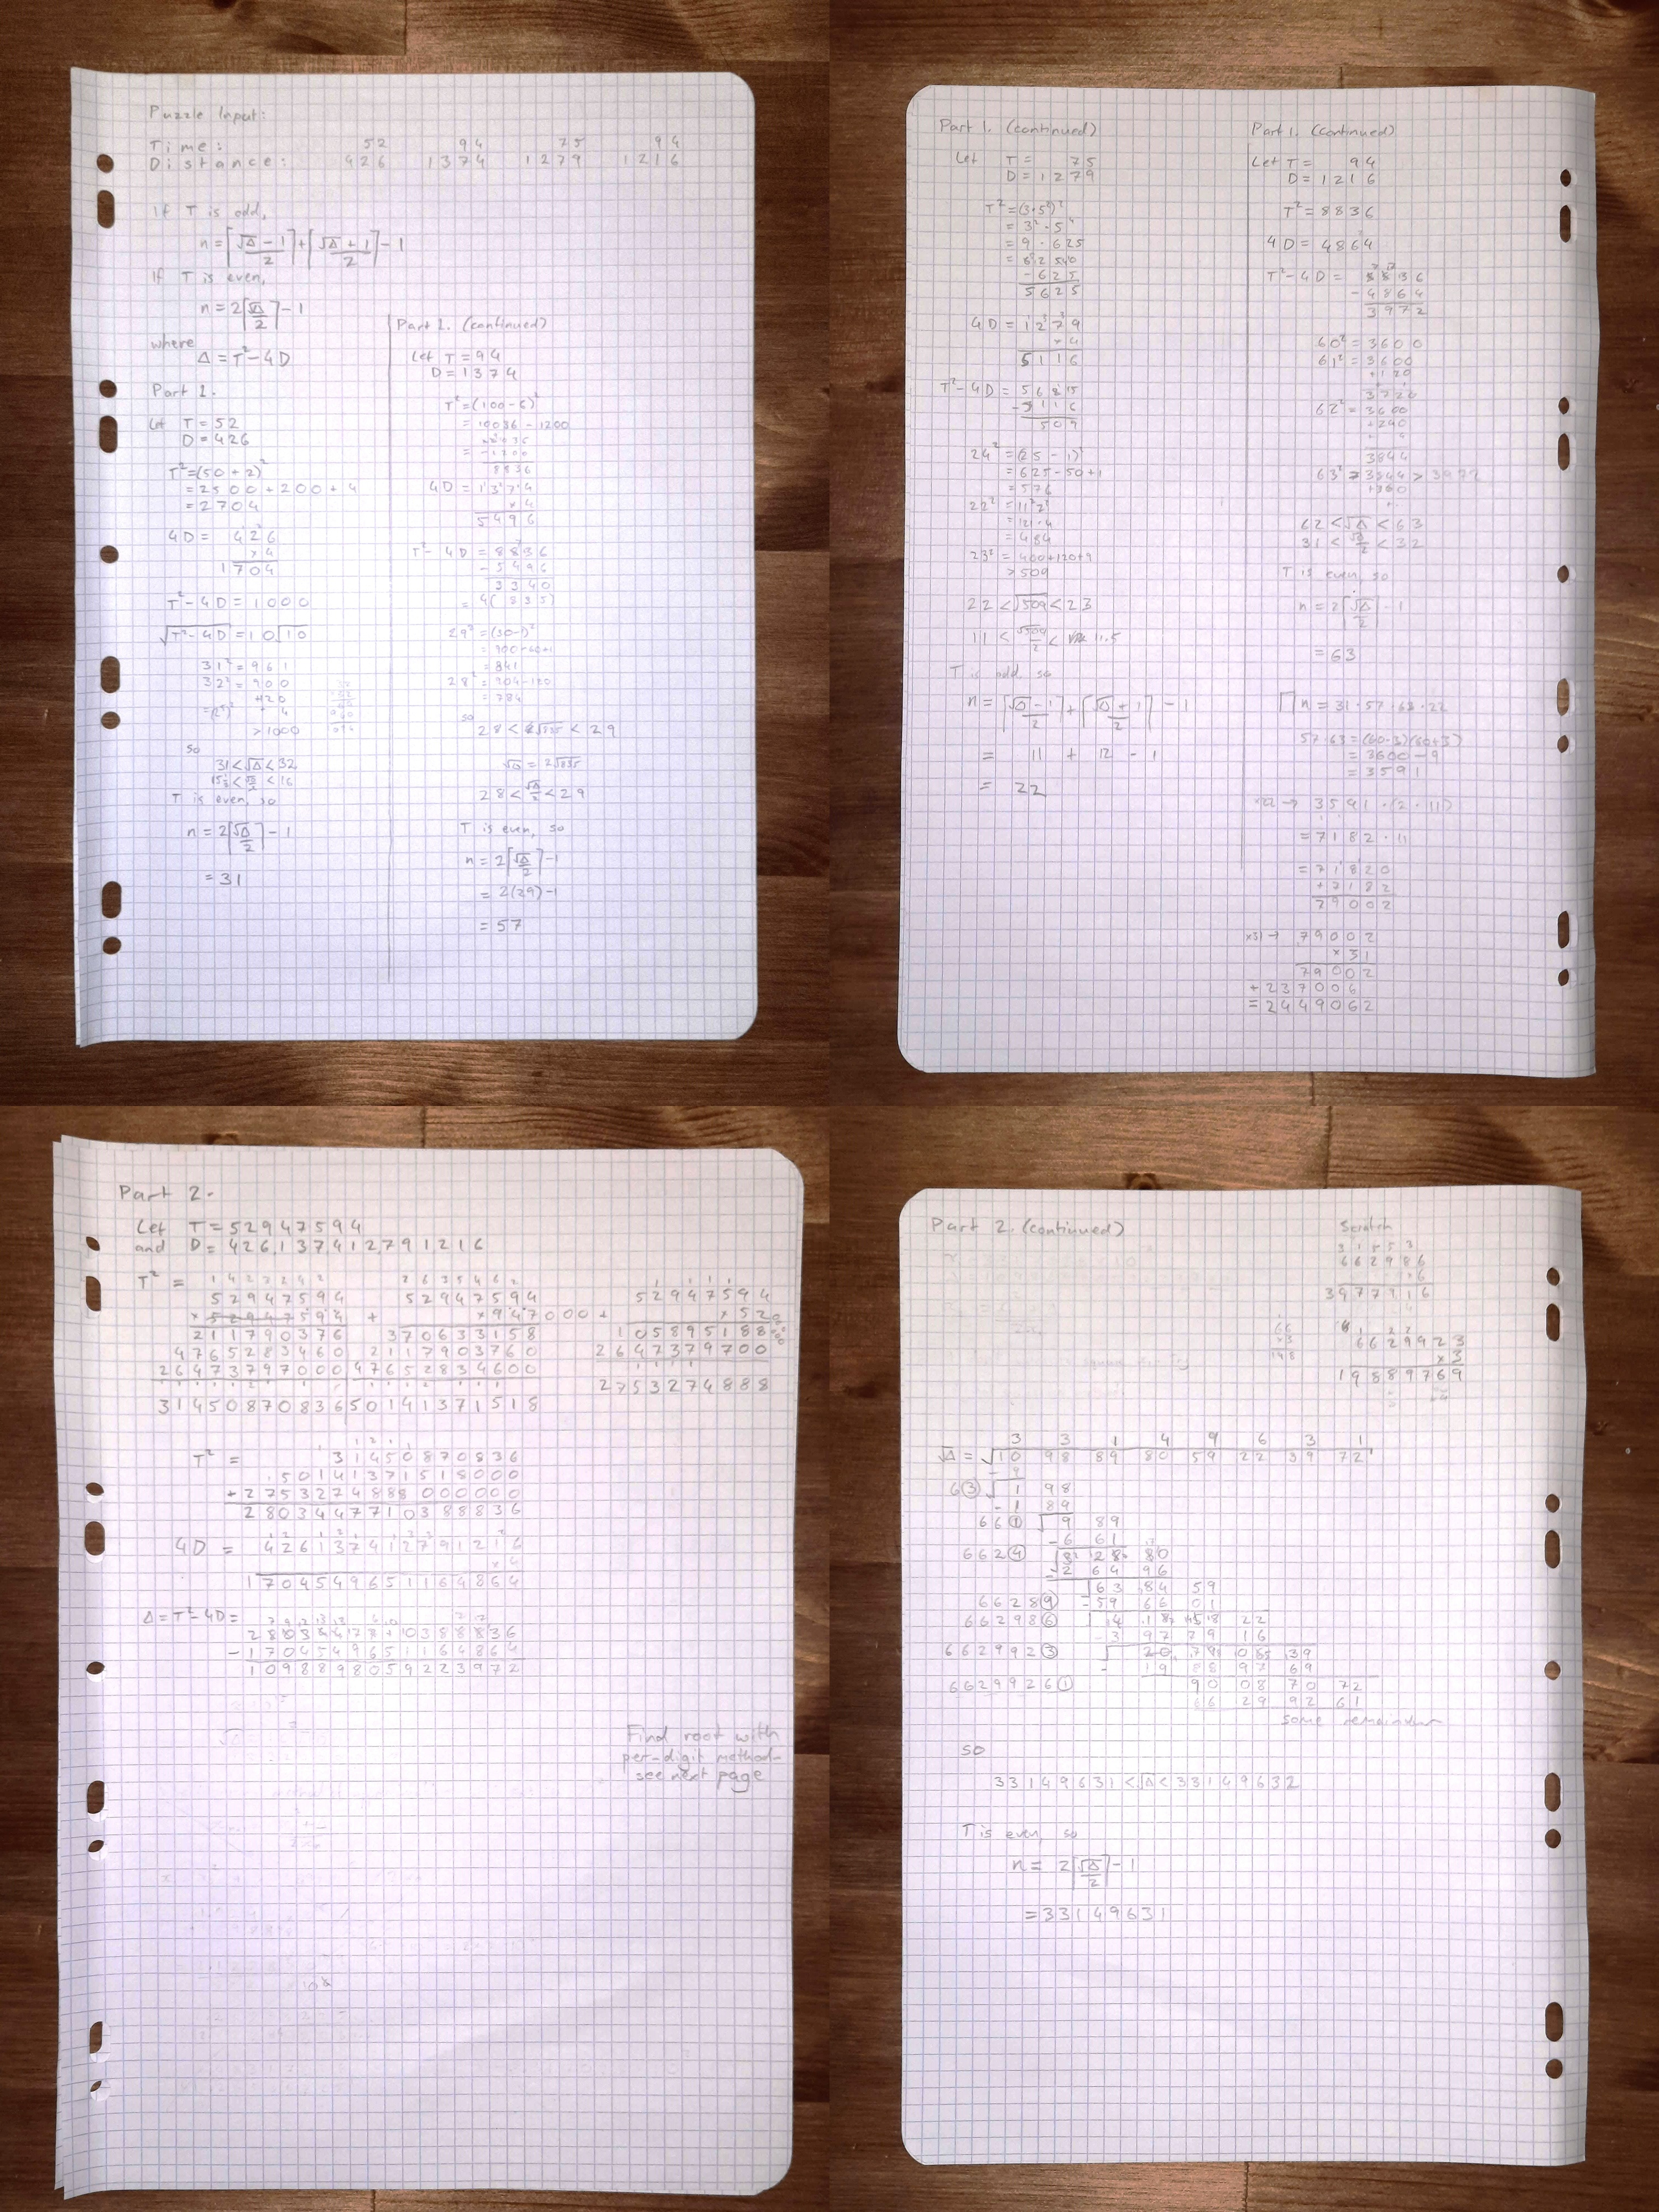 Puzzle Input:
Time: 52 94 75 94
Distance: 426 1374 1279 1216
If T is odd,
n = ⌈(√Δ - 1)/2⌉ + ⌈(√Δ + 1)/2⌉ - 1
If T is even,
n = 2⌈√Δ/2⌉ - 1
where
Δ = T² - 4D
Part 1.
Let T = 52
D = 426
T² = (50 + 2)²
= 2500 + 200 + 4
= 2704
4D = 426
× 4
1704
T² - 4D = 1000
√(T² - 4D) = 10√10
31² = 961
32² = 900
+120
+ 4
> 1000
so
31 < √Δ < 32
15½ < √Δ/2 < 16
T is even, so
n = 2⌈√Δ/2⌉ - 1
= 31
Part 1. (continued)
Let T = 94
D = 1374
T² = (100 - 6)²
= 10036 - 1200
= 10036
- 1200
8836
4D = 1374
× 4
5496
T² - 4D = 8836
- 5496
3340
= 4(835)
29² = (30-1)²
= 900-60+1
= 841
28² = 904-120
= 784
so
28 < √835 < 29
√Δ = 2√835
28 < √Δ/2 < 29
T is even, so
n = 2⌈√Δ/2⌉ - 1
= 2(29) - 1
= 57
Part 1. (continued)
Let T = 75
D = 1279
T² = (3·5²)²
= 3²·5⁴
= 9·625
= 6250
- 625
5625
4D = 1279
× 4
5116
T² - 4D = 5625
- 5116
509
24² = (25 - 1)²
= 625 - 50 + 1
= 576
22² = 11²2²
= 121·4
= 484
23² = 400+120+9
> 509
22 < √509 < 23
11 < √509/2 < 11.5
T is odd, so
n = ⌈(√Δ - 1)/2⌉ + ⌈(√Δ + 1)/2⌉ - 1
= 11 + 12 - 1
= 22
Part 1. (continued)
Let T = 94
D = 1216
T² = 8836
4D = 4864
T² - 4D = 8836
- 4864
3972
60² = 3600
61² = 3600
+120
3721
62² = 3600
+240
3844
63² > 3972
62 < √Δ < 63
31 < √Δ/2 < 32
T is even, so
n = 2⌈√Δ/2⌉ - 1
= 63
∏n = 31·57·63·22
57·63 = (60-3)(60+3)
= 3600 - 9
= 3591
×22 → 3591·(2·11)
= 7182·11
= 71820
+ 7182
79002
×31 → 79002
× 31
79002
+ 237006
= 2449062
Part 2.
Let T = 52947594
and D = 426137412791216
T² =
52947594 52947594 52947594
× 594 + × 947000 + × 52
211790376 370633158 105895188
4765283460 2117903760 2647379700
26473797000 47652834600
31450870836 50141371518 2753274888
T² = 31450870836
50141371518000
+ 2753274888000000
2803447710388836
4D = 426137412791216
× 4
1704549651164864
Δ = T² - 4D =
2803447710388836
- 1704549651164864
1098898059223972
Find root with
per-digit method-
see next page
Part 2. (continued)
Scratch
662986
×6
3977916
66
×3
198
6629923
× 3
19889769
3 3 1 4 9 6 3 1
√Δ = √10 98 89 80 59 22 39 72
- 9
63 √1 98
- 1 89
661 √9 89
- 6 61
6624 3 28 80
- 2 64 96
63 84 59
66289 - 59 66 01
662986 4 18 58 22
- 3 97 79 16
6629923 20 79 06 39
- 19 88 97 69
66299261 90 08 70 72
66 29 92 61
some remainder
so
33149631 < √Δ < 33149632
T is even, so
n = 2⌈√Δ/2⌉ - 1
= 33149631